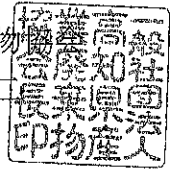 協会
一般社団法人
高知県産
業廃棄物
協会長印